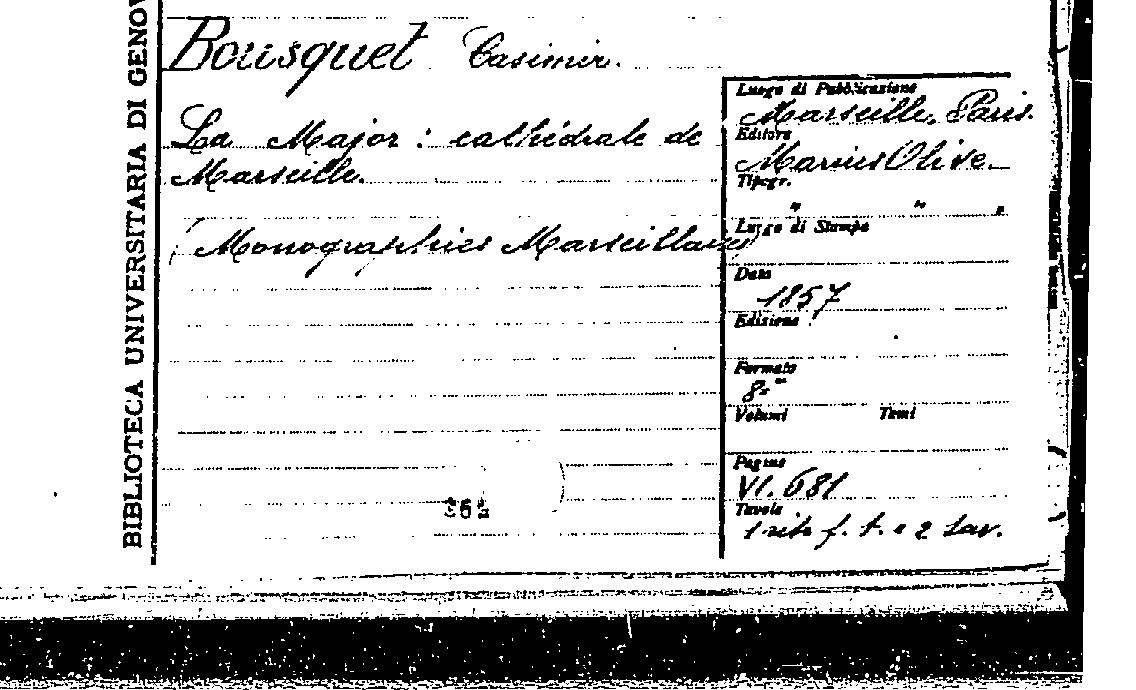 BIBLIOTECA UNIVERSITARIA DI GENOV
Bousquet Casimir.
La Major : cathédrale de
Marseille.
(Monographies Marseillaises)
362
Luogo di Pubblicazione
Marseille, Paris.
Editore
Marius Olive
Tipogr.
" " "
Luogo di Stampa
Data
1857
Edizione
Formato
8°
Volumi Tomi
Pagine
VI. 681
Tavole
1 rit. f. t. e 2 tav.